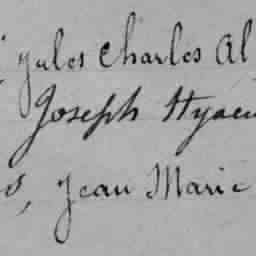 Jules Charles Al
Joseph Hyacin
s, Jean Marie